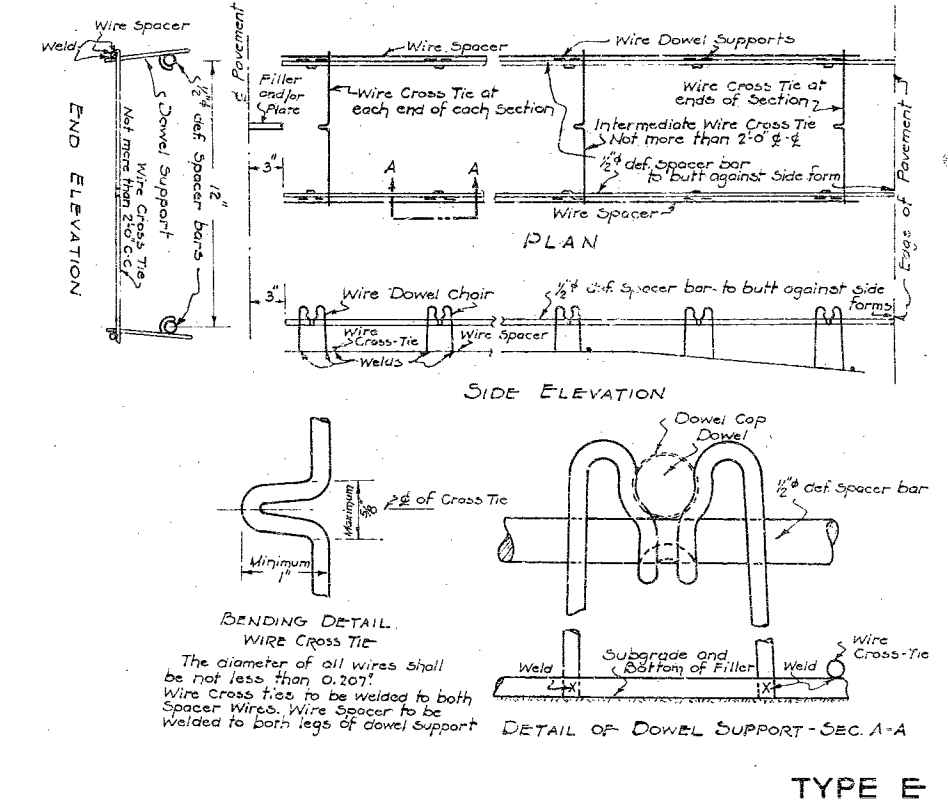 Wire Spacer
Weld
½"⌀ def. Spacer bars
Dowel Support
Wire Cross Tie
Not more than 2'-0" C-C
12"
END ELEVATION
℄ Pavement
Filler
and/or
Plate
3"
Wire Spacer
Wire Dowel Supports
Wire Cross Tie at
each end of each Section
Wire Cross Tie at
ends of Section
Intermediate Wire Cross Tie
Not more than 2'-0" ℄-℄
½"⌀ def. spacer bar
to butt against side form
A
A
Wire Spacer
Edge of Pavement
PLAN
3"
Wire Dowel Chair
½"⌀ def. Spacer bar to butt against side
forms
Wire
Cross-Tie
Wire Spacer
Welds
SIDE ELEVATION
Dowel Cap
Dowel
½"⌀ def. spacer bar
℄ of Cross Tie
Maximum
Minimum
1"
BENDING DETAIL
WIRE CROSS TIE
The diameter of all wires shall
be not less than 0.207".
Wire Cross ties to be welded to both
Spacer Wires. Wire Spacer to be
welded to both legs of dowel support
Weld
Subgrade and
Bottom of Filler
Weld
Wire
Cross-Tie
DETAIL OF DOWEL SUPPORT - SEC. A-A
TYPE E